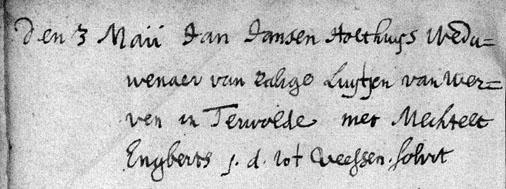 Den 3 Maii Jan Jansen Holthuys Wedu=
wenaer van zalige Luytjen van Wer=
ven in Terwolde met Mechtelt
Engberts j. d. tot Veessen.